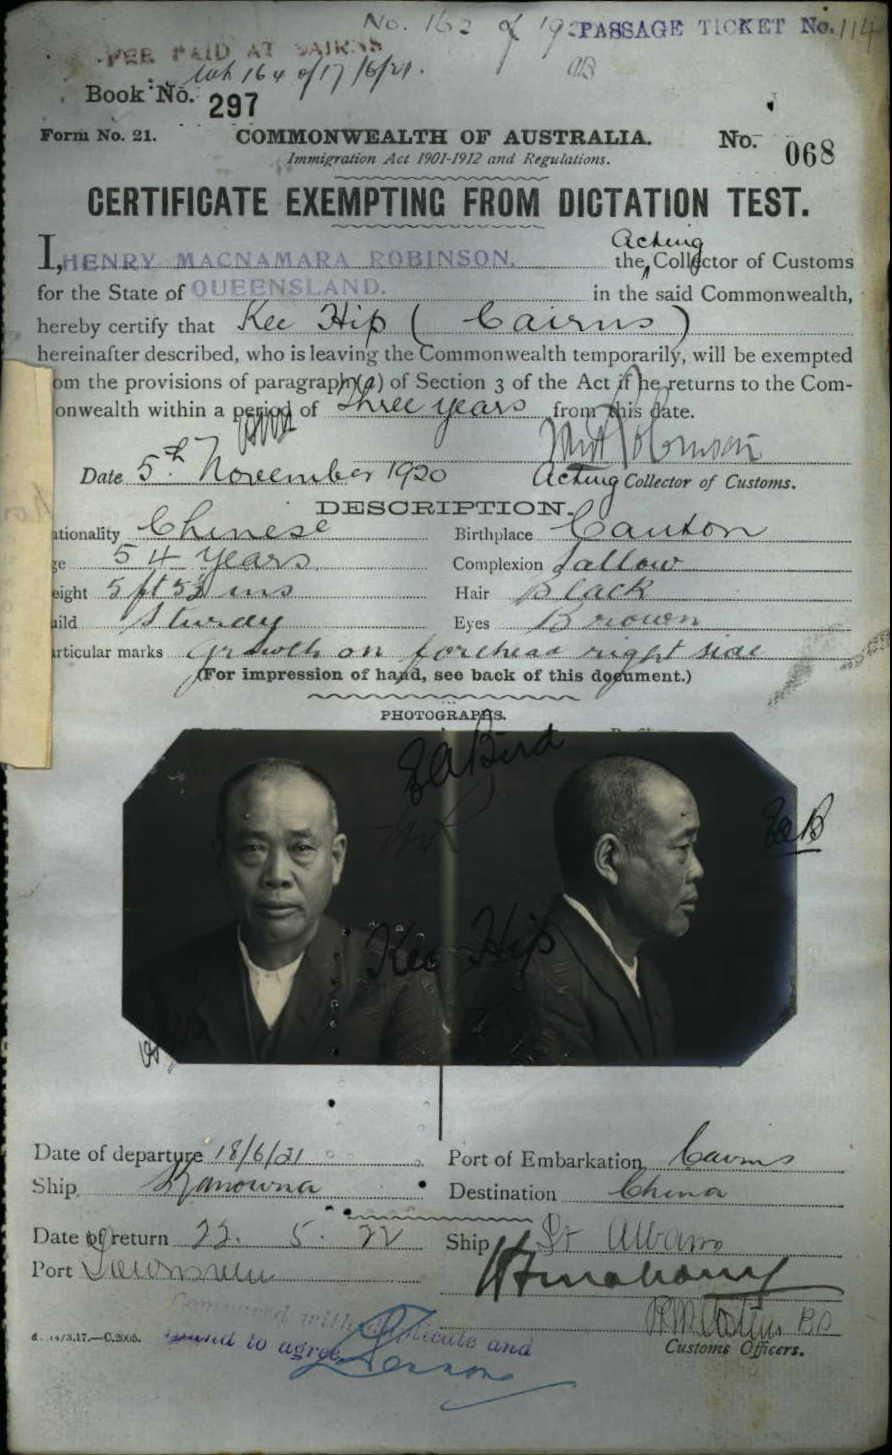 No. 162 of 192 PASSAGE TICKET No. 114
FEE PAID AT CAIRNS
164 of 17/6/21.
Book No. 297
Form No. 21. COMMONWEALTH OF AUSTRALIA. No. 068
Immigration Act 1901-1912 and Regulations.
CERTIFICATE EXEMPTING FROM DICTATION TEST.
Acting
I, HENRY MACNAMARA ROBINSON, the Collector of Customs
for the State of QUEENSLAND. in the said Commonwealth,
hereby certify that Kee Hip (Cairns)
hereinafter described, who is leaving the Commonwealth temporarily, will be exempted
om the provisions of paragraph (a) of Section 3 of the Act if he returns to the Com-
onwealth within a period of Three years from this date.
Date 5th November 1920 Acting Collector of Customs.
DESCRIPTION.
ationality Chinese Birthplace Canton
ge 54 years Complexion Sallow
eight 5 ft 5½ ins Hair Black
uild Sturdy Eyes Brown
articular marks Growth on forehead right side
(For impression of hand, see back of this document.)
PHOTOGRAPHS.
EABird
EaB
Kee Hip
Date of departure 18/6/21 Port of Embarkation Cairns
Ship Kanowna Destination China
Date of return 22. 5. 22 Ship St Albans
Port Townsville
Compared with duplicate and
found to agree
14/3.17.—C.2005. Customs Officers.